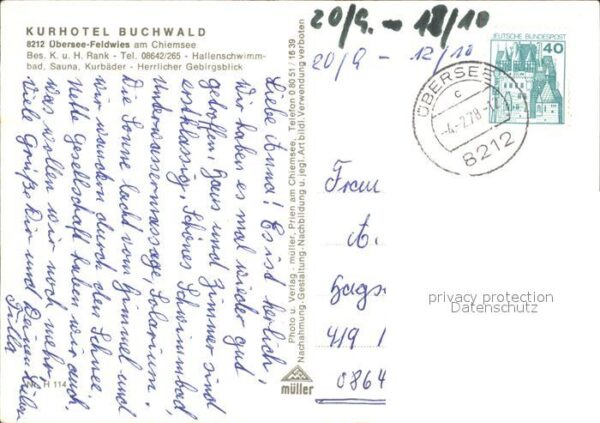 KURHOTEL BUCHWALD
8212 Übersee-Feldwies am Chiemsee
Bes. K. u. H. Rank - Tel. 08642/265 - Hallenschwimm-
bad, Sauna, Kurbäder - Herrlicher Gebirgsblick
Liebe Anna! Es ist herrlich,
wir haben es mal wieder gut
getroffen. Haus und Zimmer sind
erstklassig, schönes Schwimmbad
Unterwassermassage, Solarium.
Die Sonne lacht vom Himmel und
wir wandern durch den Schnee.
Nette Gesellschaft haben wir auch.
was wollen wir noch mehr.
Viele Grüße Dir und Deinen Lieben
H 114
Photo u. Verlag - müller, Prien am Chiemsee, Telefon 0 80 51 / 18 39
Nachahmung - Gestaltung - Nachbildung u. jegl. Art bildl. Verwendung verboten
müller
20/9. - 18/10
20/9 - 12/10
DEUTSCHE BUNDESPOST
40
ÜBERSEE
c
8212
Frau
A.
Hags
419
0864
privacy protection
Datenschutz